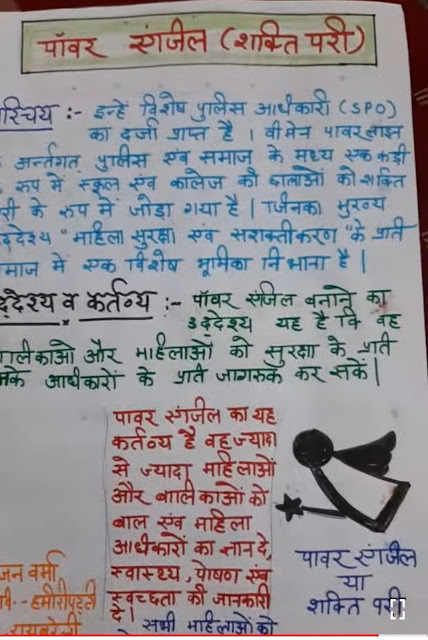 पॉवर एंगजिल (शक्ति परी)
रिचय :- इन्हें विशेष पुलिस अधिकारी (SPO)
का दर्जा प्राप्त है । वीमेन पावर लाइन
अर्न्तगत पुलिस एंव समाज के मध्य एक कड़ी
रूप में स्कूल एंव कालेज की छात्राओं को शक्ति
री के रूप में जोड़ा गया है । जिनका मुख्य
द्देश्य "माहिला सुरक्षा एंव सशक्तीकरण" के प्रति
माज में एक विशेष भूमिका निभाना है ।
द्देश्य व कर्तव्य :- पॉवर एंजिल बनाने का
उद्देश्य यह है कि वह
ालिकाओं और माहिलाओं को सुरक्षा के प्रति
नके अधिकारों के प्रति जागरुक कर सकें ।
पावर एंगजिल का यह
कर्तव्य है वह ज्यादा
से ज्यादा माहिलाओं
और बालिकाओं को
बाल एंव महिला
अधिकारों का ज्ञान दे,
स्वास्थ्य, पोषण एंव
स्वच्छता की जानकारी
दे ।
सभी माहिलाओं को
पावर एंगजिल
या
शक्ति परी
जन वर्मा
वि.- हमीरीपट्टी
रायबरेली